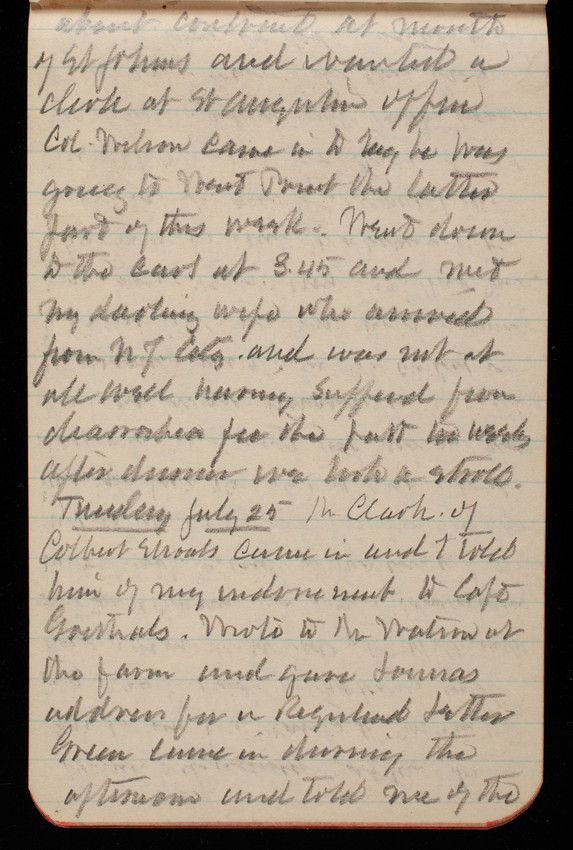 about contract at mouth
of St Johns and wanted a
clerk at St Augustin office
Col. Wilson came in to say he was
going to West Point the latter
part of this week. Went down
to the cars at 3.45 and met
my darling wife who arrived
from N.J. City. and was not at
all well having suffered from
diarrohea for the past two weeks
after dinner we took a stroll.
Tuesday July 25 Mr Clark. of
Colbert Shoals came in and I told
him of my indorsement to Capt
Goethals. Wrote to Mr Watson at
the farm and gave
address for a Regulead Letter
Green came in during the
afternoon and told me of the